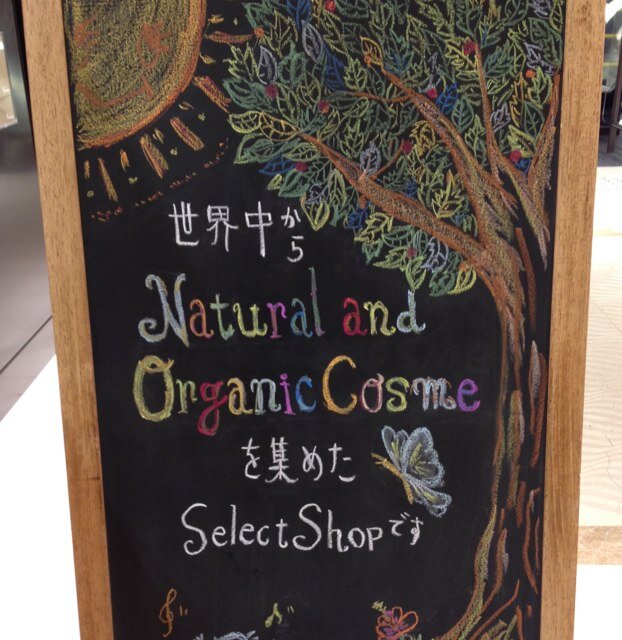 世界中から
Natural and
Organic Cosme
を集めた
Select Shopです